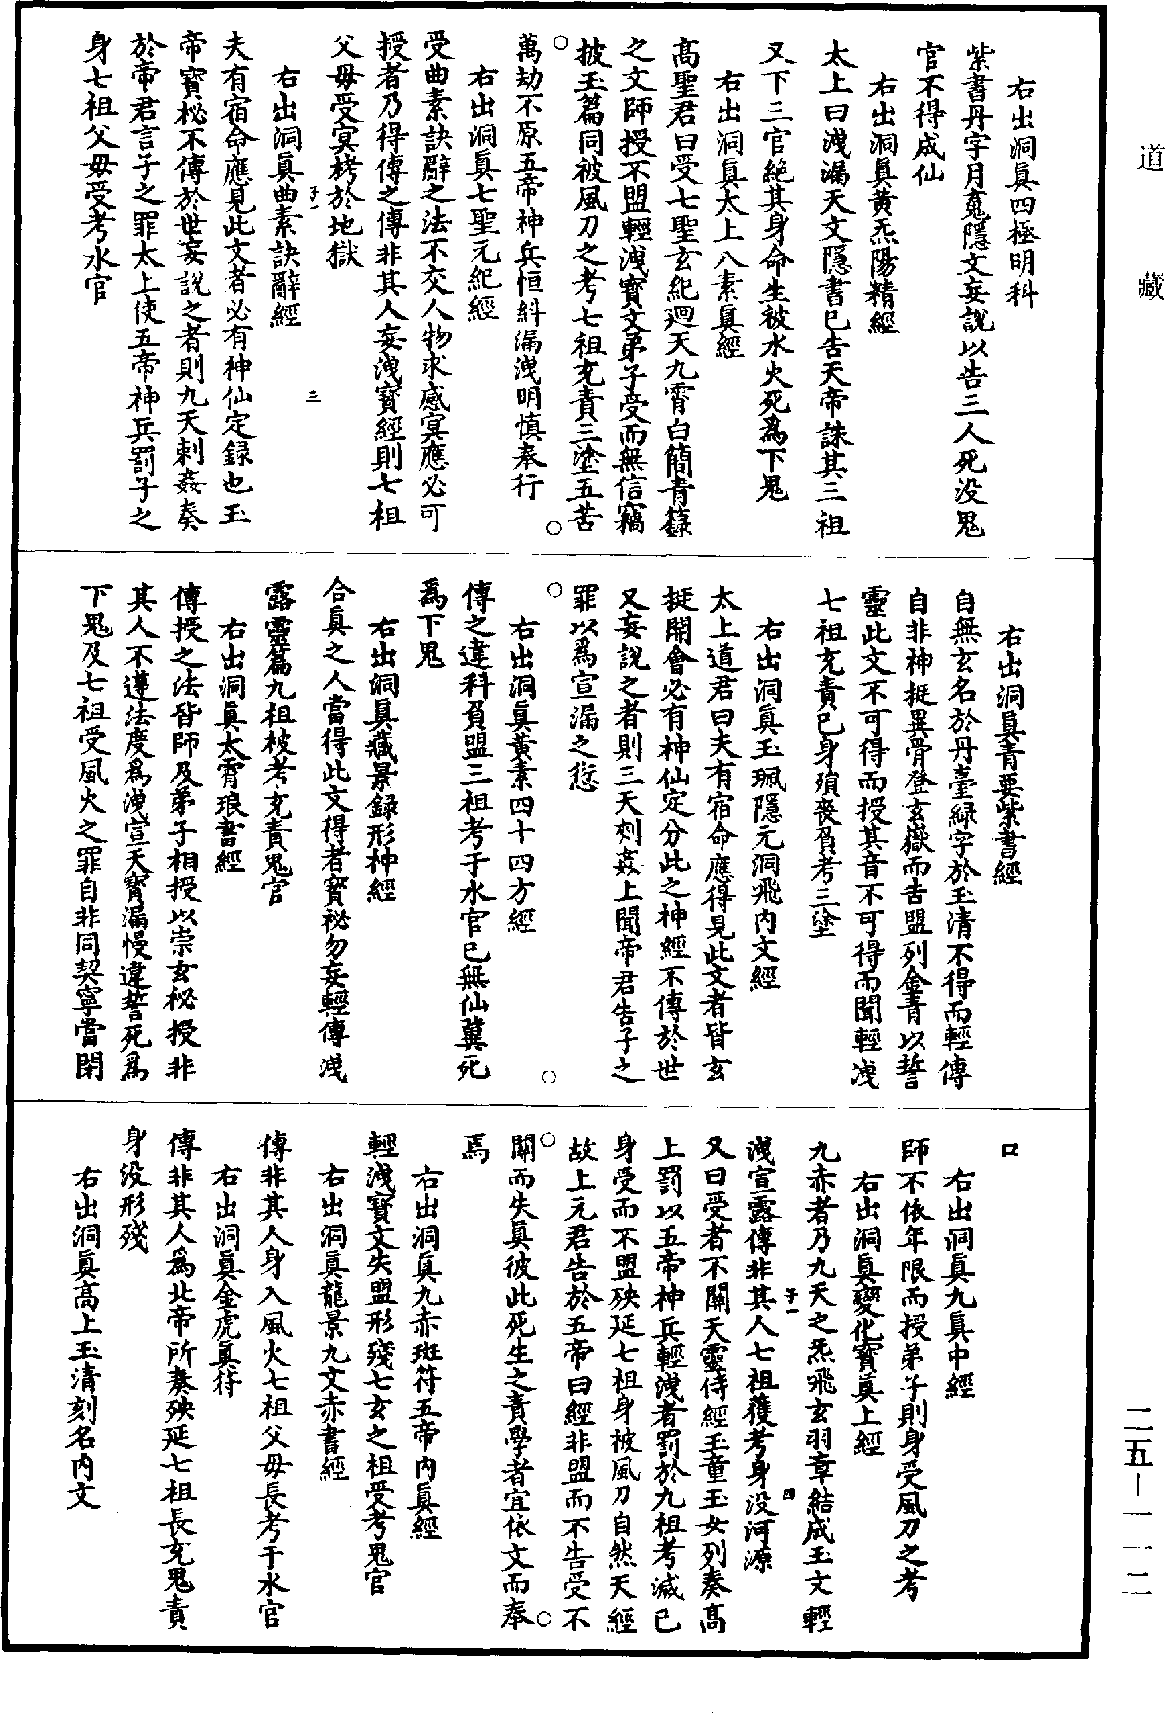 道藏
右出洞眞四極明科
紫書丹字月䰟隱文妄說以告三人死没鬼
官不得成仙
右出洞眞黃炁陽精經
太上曰洩漏天文隱書已告天帝誅其三祖
又下三官絶其身命生被水火死爲下鬼
右出洞眞太上八素眞經
高聖君曰受七聖玄紀廻天九霄白簡青籙
之文師授不盟輕洩寳文弟子受而無信竊
披玉篇同被風刀之考七祖充責三塗五苦
萬劫不原五帝神兵恒紏漏洩明慎奉行
右出洞眞七聖元紀經
受曲素訣辭之法不交人物求感冥應必可
授者乃得傳之傳非其人妄洩寳經則七祖
父母受冥栲於地獄
三
右出洞眞曲素訣辭經
夫有宿命應見此文者必有神仙定録也玉
帝寳祕不傳於世妄說之者則九天剌姦奏
於帝君言子之罪太上使五帝神兵罰子之
身七祖父母受考水官
右出洞眞青要紫書經
自無玄名於丹臺緑字於玉清不得而輕傳
自非神挺異骨登玄嶽而告盟列金青以誓
靈此文不可得而授其音不可得而聞輕洩
七祖充責已身殞喪負考三塗
右出洞眞玉珮隱元洞飛内文經
太上道君曰夫有宿命應得見此文者皆玄
挺開會必有神仙定分此之神經不傳於世
又妄說之者則三天刾姦上聞帝君告子之
罪以爲宣漏之愆
右出洞眞黃素四十四方經
傳之違科負盟三祖考于水官已無仙冀死
爲下鬼
右出洞眞藏景録形神經
合眞之人當得此文得者寳祕勿妄輕傳洩
露靈篇九祖被考充責鬼官
右出洞眞太霄琅書經
傳授之法皆師及弟子相授以崇玄祕授非
其人不遵法度爲洩宣天寳漏慢違誓死爲
下鬼及七祖受風火之罪自非同契寧當閉
口
右出洞眞九眞中經
師不依年限而授弟子則身受風刀之考
右出洞眞變化寳眞上經
九赤者乃九天之炁飛玄羽章結成玉文輕
洩宣露傳非其人七祖獲考身没河源
四
又曰受者不關天靈侍經玉童玉女列奏高
上罰以五帝神兵輕洩者罰於九祖考滅已
身受而不盟殃延七祖身被風刀自然天經
故上元君告於五帝曰經非盟而不告受不
關而失眞彼此死生之責學者宜依文而奉
焉
右出洞眞九赤班符五帝内眞經
輕洩寳文失盟形殘七玄之祖受考鬼官
右出洞眞龍景九文赤書經
傳非其人身入風火七祖父母長考于水官
右出洞眞金虎眞符
傳非其人爲北帝所奏殃延七祖長充鬼責
身没形殘
右出洞眞高上玉清刻名内文
二五—一一二